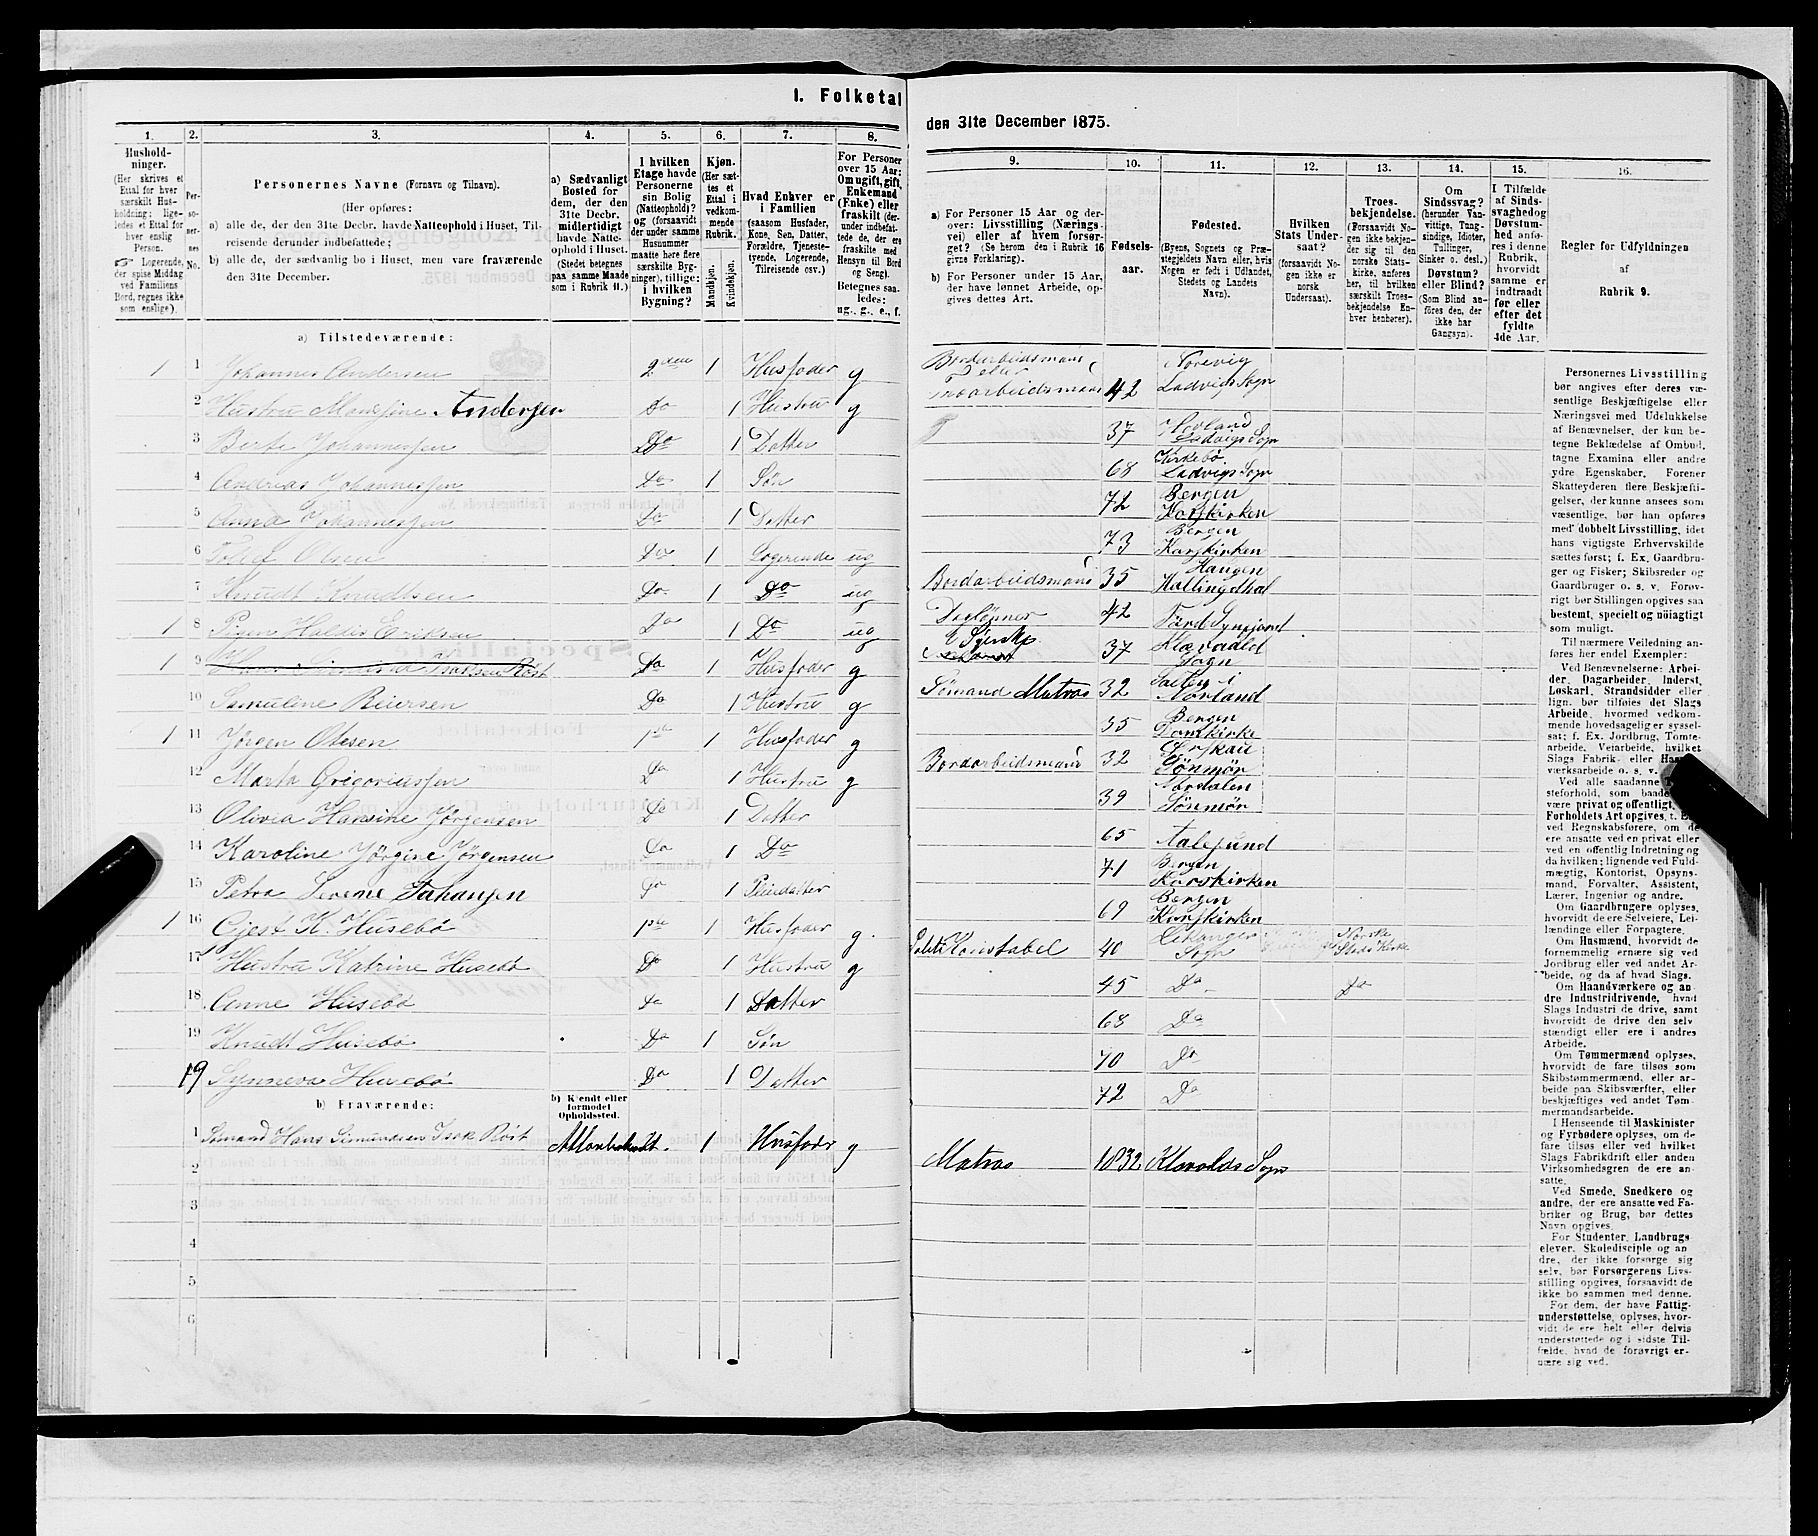 I. Folketal
den 31te December 1875.
1.
Husholdninger.
(Her skrives et
Ettal for hver
særskilt Husholdning;
ligeledes et Ettal for
hver enslig
Person.
Logerende,
der spise Middag
ved Familiens
Bord, regnes ikke
som enslige).
2.
Personernes
No.
3.
Personernes Navne (Fornavn og Tilnavn).
(Her opføres:
a) alle de, der den 31te Decbr. havde Natteophold i Huset, Tilreisende derunder indbefattede;
b) alle de, der sædvanlig bo i Huset, men vare fraværende
den 31te December.
4.
a) Sædvanligt
Bosted for
dem, der den
31te Decbr.
midlertidigt
havde Natteophold i Huset.
(Stedet betegnes
paa samme Maade
som i Rubrik 11.)
5.
I hvilken
Etage havde
Personerne
sin Bolig
(Natteophold)?
og (forsaavidt
der under samme
Husnummer
maatte høre flere
særskilte Bygninger), tillige:
i hvilken
Bygning?
6.
Kjøn.
(Her sættes et
Ettal i
vedkommende
Rubrik.
Mandkjøn.
Kvindekjøn.
7.
Hvad Enhver er
i Familien
(saasom Husfader,
Kone, Søn, Datter,
Forældre, Tjenestetyende, Logerende,
Tilreisende osv.)
8.
For Personer
over 15 Aar:
Om ugift, gift,
Enkemand
(Enke) eller
fraskilt
Betegnes saaledes:
ug., g., e., f.
9.
a) For Personer 15 Aar og derover: Livsstilling (Næringsvei) eller af hvem forsørget? (Se herom den i Rubrik 16 givne Forklaring).
b) For Personer under 15 Aar, der have lønnet Arbeide, opgives dettes Art.
10.
Fødselsaar.
11.
Fødested.
(Byens, Sognets og Præstegjeldets Navn eller, hvis
Nogen er født i Udlandet,
Stedets og Landets
Navn).
12.
Hvilken
Stats Undersaat?
(forsaavidt Nogen ikke er
norsk
Undersaat).
13.
Troesbekjendelse.
(Forsaavidt Nogen ikke bekjender sig til den
norske Statskirke, anføres
her, til hvilken
særskilt Troesbekjendelse Enhver henhører).
14.
Om
Sindssvag?
(herunder Vanvittige, Tungsindige, Idioter,
Tullinger,
Sinker o. desl.)
Døvstum?
eller Blind?
(Som Blind anføres den, der
ikke har
Gangsyn).
15.
I Tilfælde
af Sindssvaghed og
Døvstumhed anføres i denne
Rubrik,
hvorvidt
samme er
indtraadt
før eller
efter det
fyldte
4de Aar.
16.
Regler for Udfyldningen
af
Rubrik 9.
a) Tilstedeværende:
1 1 Johannes Andersen 2den 1 Husfader g Bordarbeidsmand 42 Norevig Ladvigs Sogn
2 Hustru Andersen Do 1 Hustru g 37 Hovland Ladvigs Sogn
3 Berte Johannessen Do 1 Datter 68 Kirkebø Ladvigs Sogn
4 Andreas Johannessen Do 1 Søn 72 Bergen Korskirken
5 Anna Johannessen Do 1 Datter 73 Bergen Korskirken
6 Olsen Do 1 Logerende ug Bordarbeidsmand 35 Haugen Hallingdhal
7 Knudt Knudtsen Do 1 Do ug Daglønner 42
1 8 Pigen Haldis Eriksen Do 1 Do ug 37 Sogn
1 9 Do 1 Husfader g Sømand Matros 32 Salten i Norland
10 Samuline Reiersen Do 1 Hustru g 35 Bergen Domkirke
1 11 Jørgen Olsen 1ste 1 Husfader g Bordarbeidsmand 32 Sønmør
12 Marta Gregoriussen Do 1 Hustru g 39 Nordalen Sønmør
13 Olivia Hansine Jørgensen Do 1 Datter 65 Aalesund
14 Karoline Jørgine Jørgensen Do 1 Do 71 Bergen Korskirken
15 Petra Do 1 Pleiedatter 69 Bergen Korskirken
1 16 Gjest K. Husebø 1ste 1 Husfader g. Politi Konstabel 40 Leikanger Sogn Norske Stats Kirke
17 Hustru Katrine Husebø Do 1 Hustru g 45 Do Do
18 Anne Husebø Do 1 Datter 68 Do
19 Knudt Husebø Do 1 Søn 70 Do
19 Synneva Husebø Do 1 Datter 72 Do
b) Fraværende:
b) Kjendt eller
formodet
Opholdssted.
1 Sømand Hans Simundsen Isak Röst 1 Husfader g Matros 1832 Sogn
2
3
4
5
6
Personernes Livsstilling
bør angives efter deres væsentlige Beskjæftigelse eller
Næringsvei med Udelukkelse
af Benævnelser, der kun betegne Beklædelse af Ombud,
tagne Examina eller andre
ydre Egenskaber. Forener
Skatteyderen flere Beskjæftigelser, der kunne ansees som
væsentlige, bør han opføres
med dobbelt Livsstilling, idet
hans vigtigste Erhvervskilde
sættes først; f. Ex. Gaardbruger og Fisker; Skibsreder og
Gaardbruger o. s. v. Forøvrigt bør Stillingen opgives saa
bestemt, specielt og nöiagtigt
som muligt.
Til nærmere Veiledning anføres her endel Exempler:
Ved Benævnelserne: Arbeider, Dagarbeider, Inderst,
Løskarl, Strandsidder eller
lign. bør tilføies det Slags
Arbeide, hvormed vedkommende hovedsagelig er sysselsat; f. Ex. Jordbrug, Tomtearbeide, Veiarbeide, hvilket
Om Gaardbrugere oplyses,
hvorvidt de ere Selveiere, Leilændinge eller Forpagtere.
Om Husmænd, hvorvidt de
fornemmelig ernære sig ved
Jordbrug eller ved andet Arbeide, og da af hvad Slags.
Om Haandværkere og andre Industridrivende, hvad
Slags Industri de drive, samt
hvorvidt de drive den selvstændigt eller ere i andres
Arbeide.
Om Tømmermænd oplyses,
hvorvidt de fare tilsøs som
Skibstømmermænd, eller arbeide paa Skibsværfter, eller
beskjæftiges ved andet Tømmermandsarbeide.
I Henseende til Maskinister
og Fyrbødere oplyses, om de
fare tilsøs eller ved hvilket
Slags Fabrikdrift eller anden
Virksomhedsgren de ere ansatte.
Ved Smede, Snedkere og
andre, der ere ansatte ved Fabriker og Brug, bør dettes
Navn opgives.
For Studenter, Landbrugselever, Skoledisciple og andre, der ikke forsørge sig
selv, bør Forsørgerens Livsstilling opgives, forsaavidt de
ikke bo sammen med denne.
For dem, der have Fattigunderstøttelse, oplyses, hvorvidt de ere helt eller delvis
understøttede og i sidste Tilfælde, hvad de forøvrigt ernære sig ved.